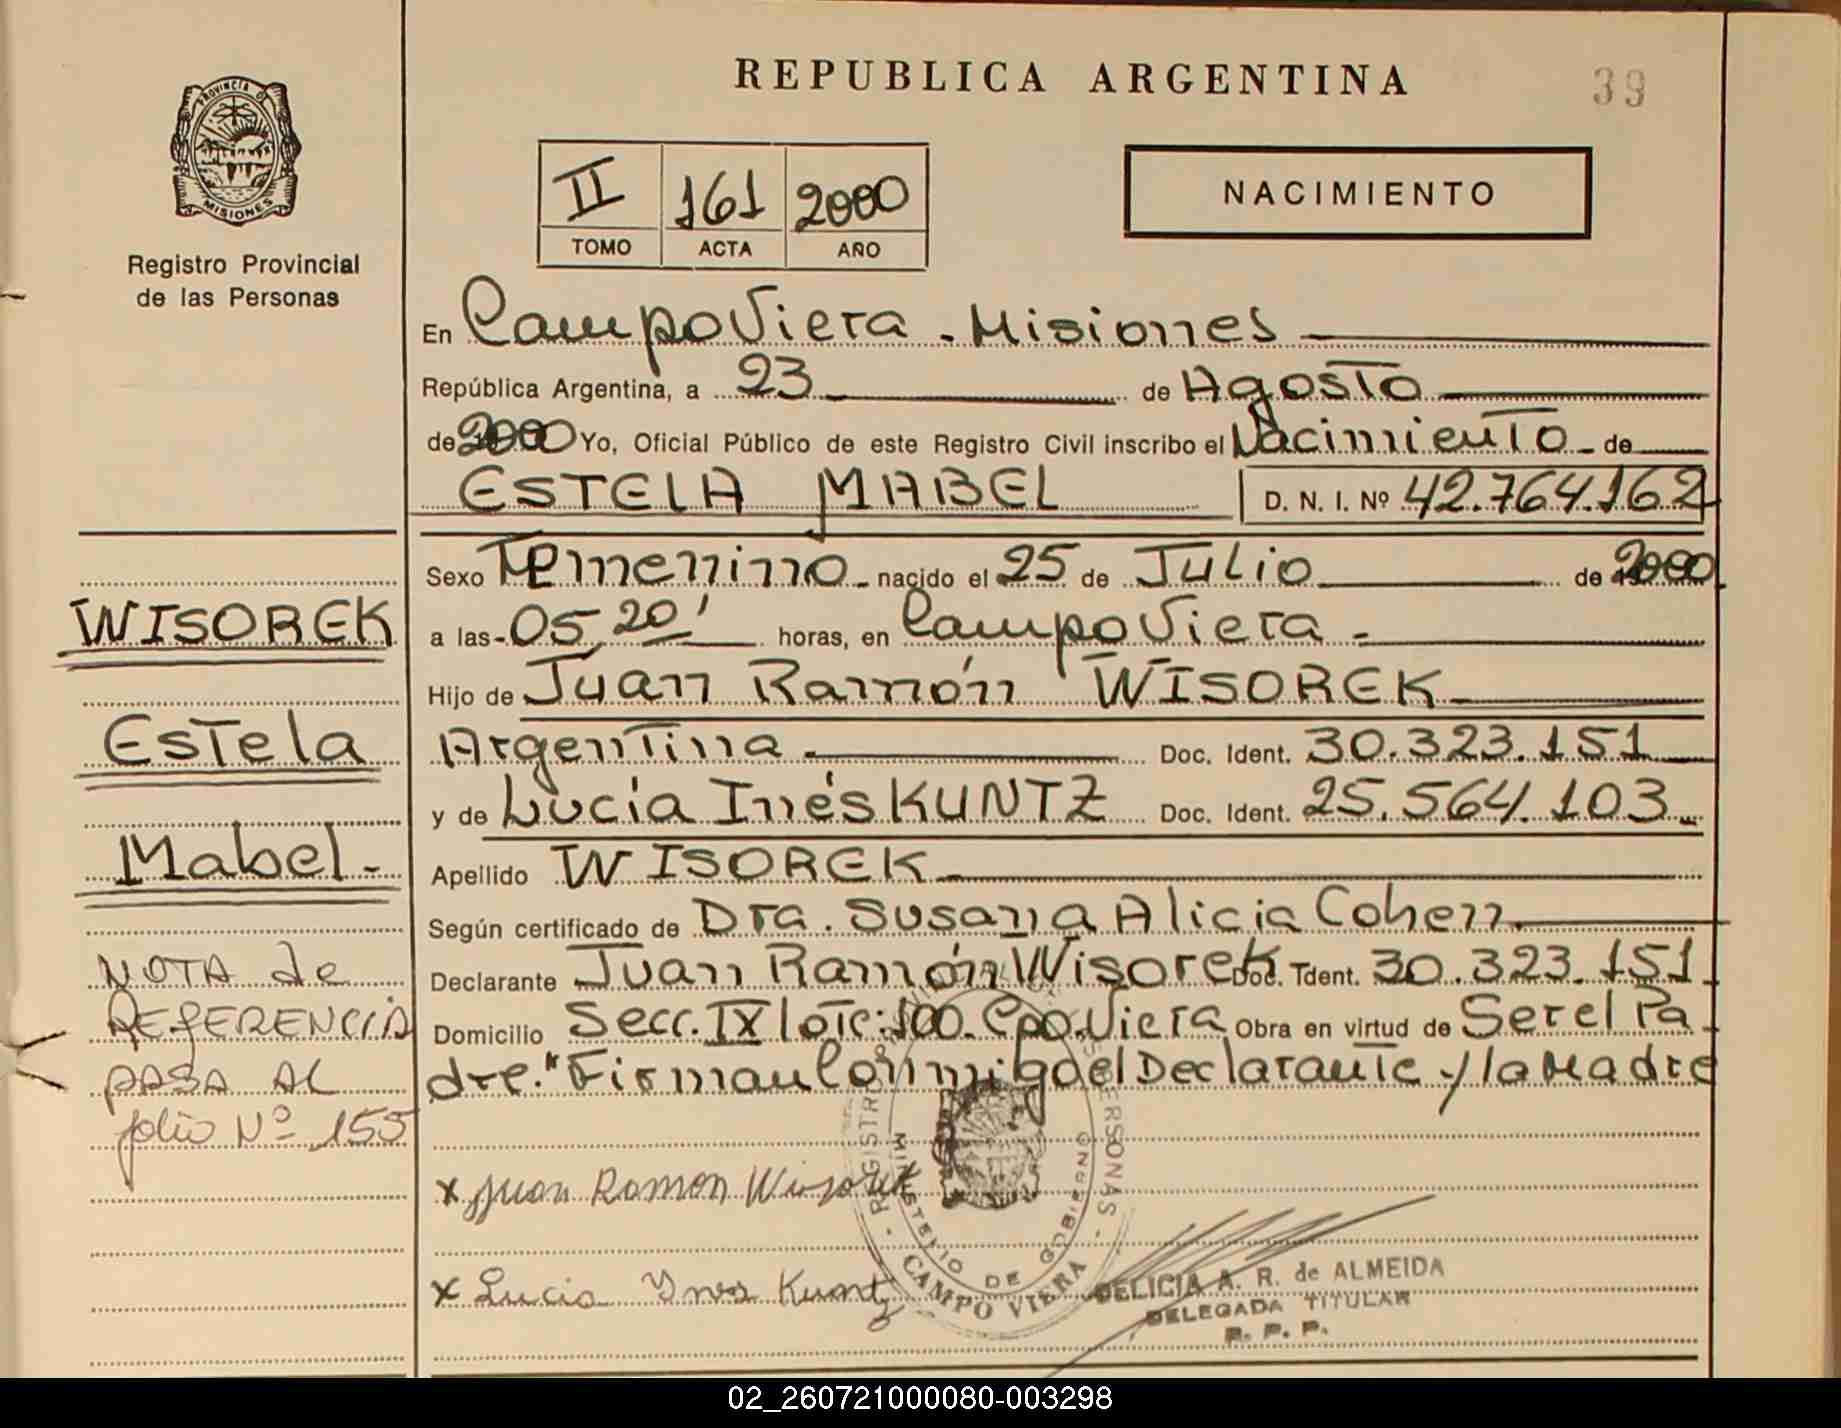 REPUBLICA ARGENTINA
39
PROVINCIA DE
MISIONES
Registro Provincial
de las Personas
II 161 2000
TOMO ACTA AÑO
NACIMIENTO
En Campo Viera - Misiones
República Argentina, a 23 de Agosto
de 2000 Yo, Oficial Público de este Registro Civil inscribo el Nacimiento de
ESTELA MABEL D. N. I. Nº 42.764.162
Sexo Femenino nacido el 25 de Julio de 2000
a las 05,20' horas, en Campo Viera
Hijo de Juan Ramón WISOREK
Argentina Doc. Ident. 30.323.151
y de Lucía Inés KUNTZ Doc. Ident. 25.564.103
Apellido WISOREK
Según certificado de Dra. Susana Alicia Cohen
Declarante Juan Ramón Wisorek Doc. Ident. 30.323.151
Domicilio Secc. IX lote: 100. Cpo. Viera Obra en virtud de Ser el Pa
dre." Firman Conmigo el Declarante y la Madre
WISOREK
Estela
Mabel.-
NOTA de
REFERENCIA
PASA AL
folio Nº 155
x Juan Ramon Wisorek
x Lucia Ynes Kuntz
REGISTRO PERSONAS
MINISTERIO DE GOBIERNO
CAMPO VIERA
DELICIA A. R. de ALMEIDA
DELEGADA TITULAR
R. P. P.
02_260721000080-003298